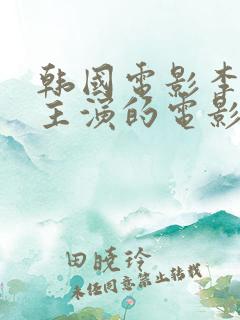 韩國電影李
主演的電影
田晓玲
未经同意禁止转载